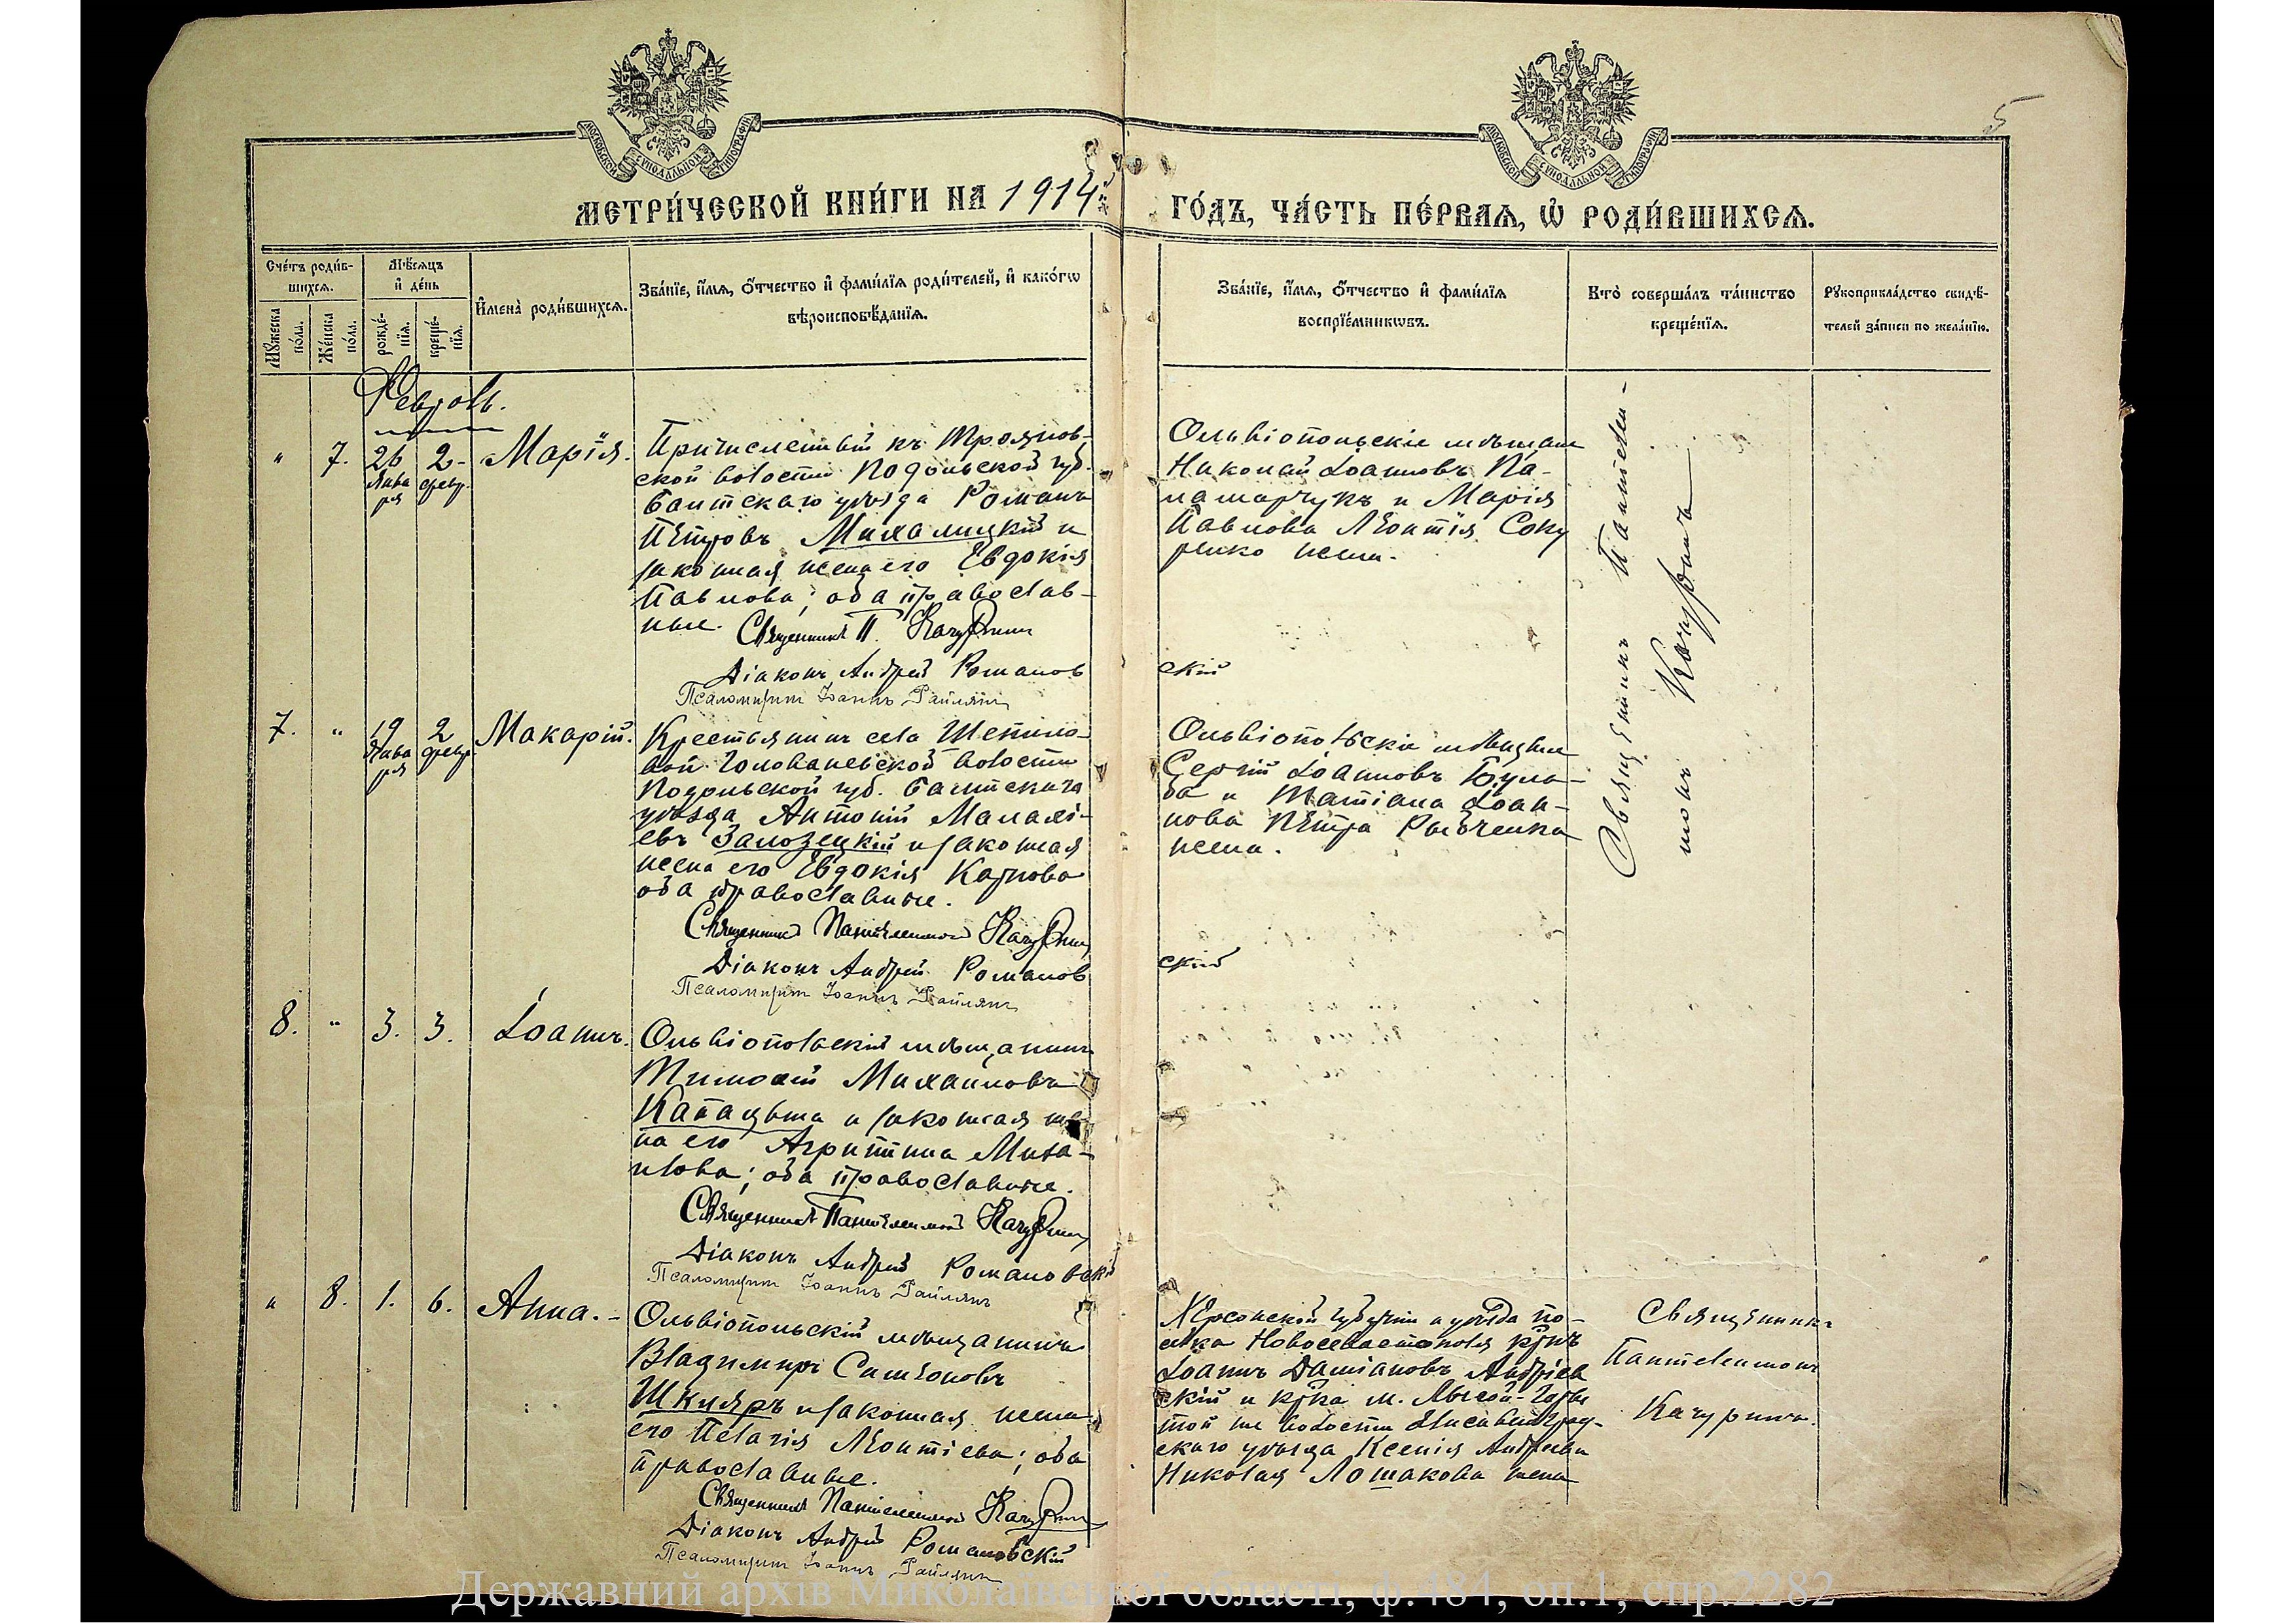 МОСКОВСКОЙ СѴНОДАЛЬНОЙ ТИПОГРАФІИ
МОСКОВСКОЙ СѴНОДАЛЬНОЙ ТИПОГРАФІИ
5
МЕТРИ́ЧЕСКОЙ КНИ́ГИ НА 1914 ГО́ДЪ, ЧА́СТЬ ПЕ́РВАЯ, Ѡ РОДИ́ВШИХСЯ.
Сче́тъ роди́в-
шихся.
Мѣ́сяцъ
и҆ де́нь
Мꙋ́жеска по́ла.
Же́нска по́ла.
рожде́-нїя.
креще́-нїя.
И҆мена̀ роди́вшихся.
Зва́нїе, и҆́мя, ѻ҆́тчество и҆ фами́лїя роди́телей, и҆ како́гѡ
вѣроисповѣ́данїя.
Зва́нїе, и҆́мя, ѻ҆́тчество и҆ фами́лїя
воспрїе́мникѡвъ.
Кто̀ соверша́лъ та́инство
креще́нїя.
Рꙋкоприкла́дство свидѣ́-
телей за́писи по жела́нїю.
Февраль.
" 7. 26 Января 2 февр. Марія.
Причисленный къ Троянов-
ской волости Подольской губ.
Балтскаго уѣзда Романъ
Петровъ Михалицкій и
законная жена его Евдокія
Павлова; оба православ-
ные.
Священникъ П. Качуринъ
Діаконъ Андрей Романов
ский
Псаломщикъ Іоаннъ Райлянъ
Ольвіопольскіе мѣщане
Николай Іоанновъ Па-
ламарчукъ и Марія
Павлова Леонтія Соку
ренко жена.
Священникъ Пантелеи-
монъ Качуринъ
7. " 19 Января 2 февр. Макарій.
Крестьянинъ села Шепило-
вой Голованевской волости
Подольской губ. Балтскаго
уѣзда Антоній Малахі-
евъ Залозецкій и законная
жена его Евдокія Карпова
оба православные.
Священникъ Пантелеимонъ Качуринъ
Діаконъ Андрей Романов
ский
Псаломщикъ Іоаннъ Райлянъ
Ольвіопольскіе мѣщане
Сергій Іоанновъ Була-
ва и Татіана Іоан-
нова Петра Рыбченка
жена.
8. " 3. 3. Іоаннъ.
Ольвіопольскій мѣщанинъ
Тимофей Михаиловъ
Капацына и законная же-
на его Агриппина Миха-
илова; оба православные.
Священникъ Пантелеимонъ Качуринъ
Діаконъ Андрей Романовскій
Псаломщикъ Іоаннъ Райлянъ
" 8. 1. 6. Анна.
Ольвіопольскій мѣщанинъ
Владимиръ Симеоновъ
Шкляръ и законная жена
его Пелагія Леонтіева; оба
православные.
Священникъ Пантелеимонъ Качуринъ
Діаконъ Андрей Романовскій
Псаломщикъ Іоаннъ Райлянъ
Херсонской губерніи и уѣзда по-
селка Новосевастополя кр-нъ
Іоаннъ Даміановъ Андріев
скій и кр-ка м. Лысой-Горы
той же волости Елисаветград-
скаго уѣзда Ксенія Андреева
Николая Лошакова жена
Священникъ
Пантелеимонъ
Качуринъ.
Державний архів Миколаївської області, ф.484, оп.1, спр.2282